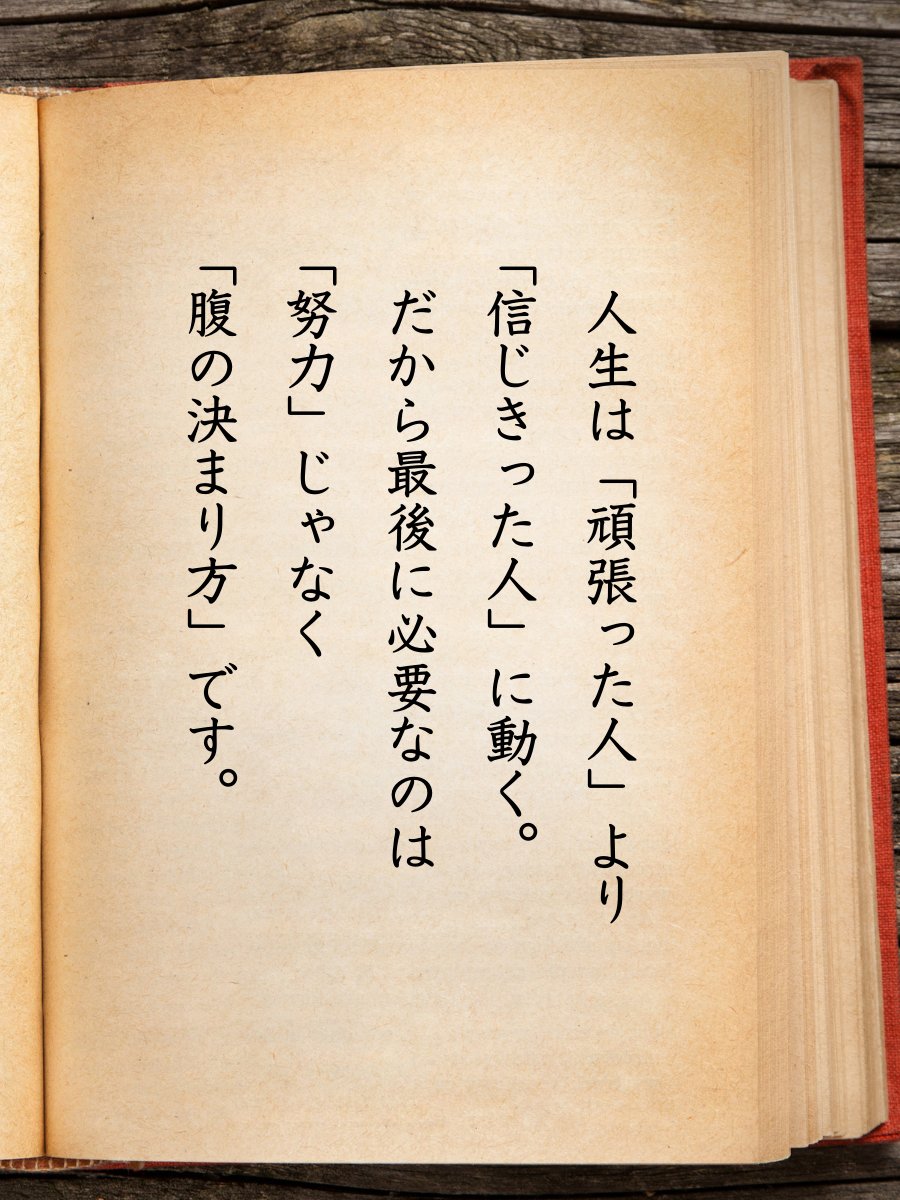 人生は「頑張った人」より
「信じきった人」に動く。
だから最後に必要なのは
「努力」じゃなく
「腹の決まり方」です。